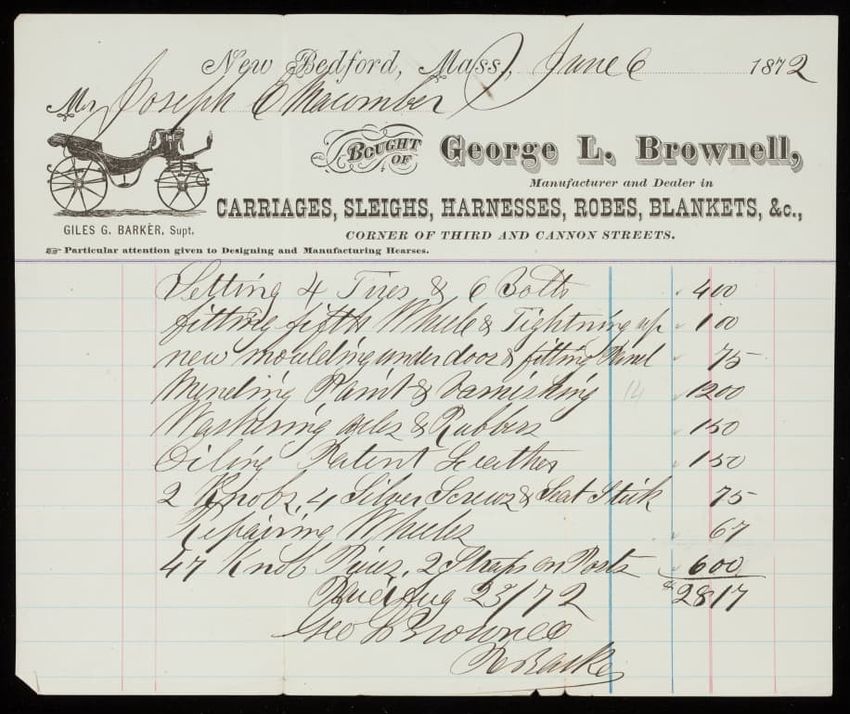 New Bedford, Mass, June 6 1872
Mr Joseph E Macomber
BOUGHT OF George L. Brownell,
Manufacturer and Dealer in
CARRIAGES, SLEIGHS, HARNESSES, ROBES, BLANKETS, &c.,
GILES G. BARKER, Supt.
CORNER OF THIRD AND CANNON STREETS.
Particular attention given to Designing and Manufacturing Hearses.
Setting 4 Tires & 6 Bolts 400
fitting fifth Wheele & Tightning up 100
new moulding under door & fitting Panel 75
Mending Paint & Varnishing 1200
Washering axles & Rubbers 150
Oiling Patent Leather 150
2 Knobs 4 Silver Screws & Seat Stick 75
Repairing Wheels 67
47 Knob 2 Straps on Posts 600
$2817
Paid Aug 23/72
Geo L Brownell